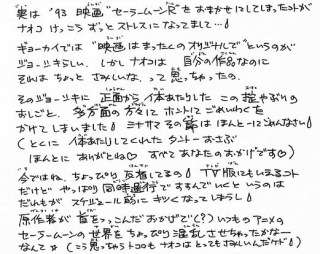 実は '93 映画 "セーラームーンR" をおまかせにしてしまったコトが
ナオコ けっこう ずっと ストレスになってまして…!
ギョーカイでは "映画はまったくのオリジナルで" というのが
ジョーシキらしい。しかし ナオコは 自分の作品なのに
それは ちょっと さみしいな、って思っちゃったの。
そのジョーシキに 正面から 体あたりした この
おしごと。多方面の 方々に ホントに ごめいわくを
かけてしまいました! ミナサマ その節は ほんとーに ごめんなさい!
(とくに 体あたりしてくれた タントー おさぶ
ほんとに ありがとね♡ すべて あなたのおかげです♡)
今ではね、ちょっぴり 反省してるの! TV版にもいえるコト
だけど やっぱり 同時進行で すすんでいくと いうのは
だれもが スケジュール的に キツくなってしまうし
原作者が 首をつっこんだ おかげで(?) いつもの アニメの
セーラームーンの 世界を ちょっぴり 混乱させちゃったかなー
なんて☆ (こう思っちゃうトコも ナオコは とってもさみしいんだケド!)